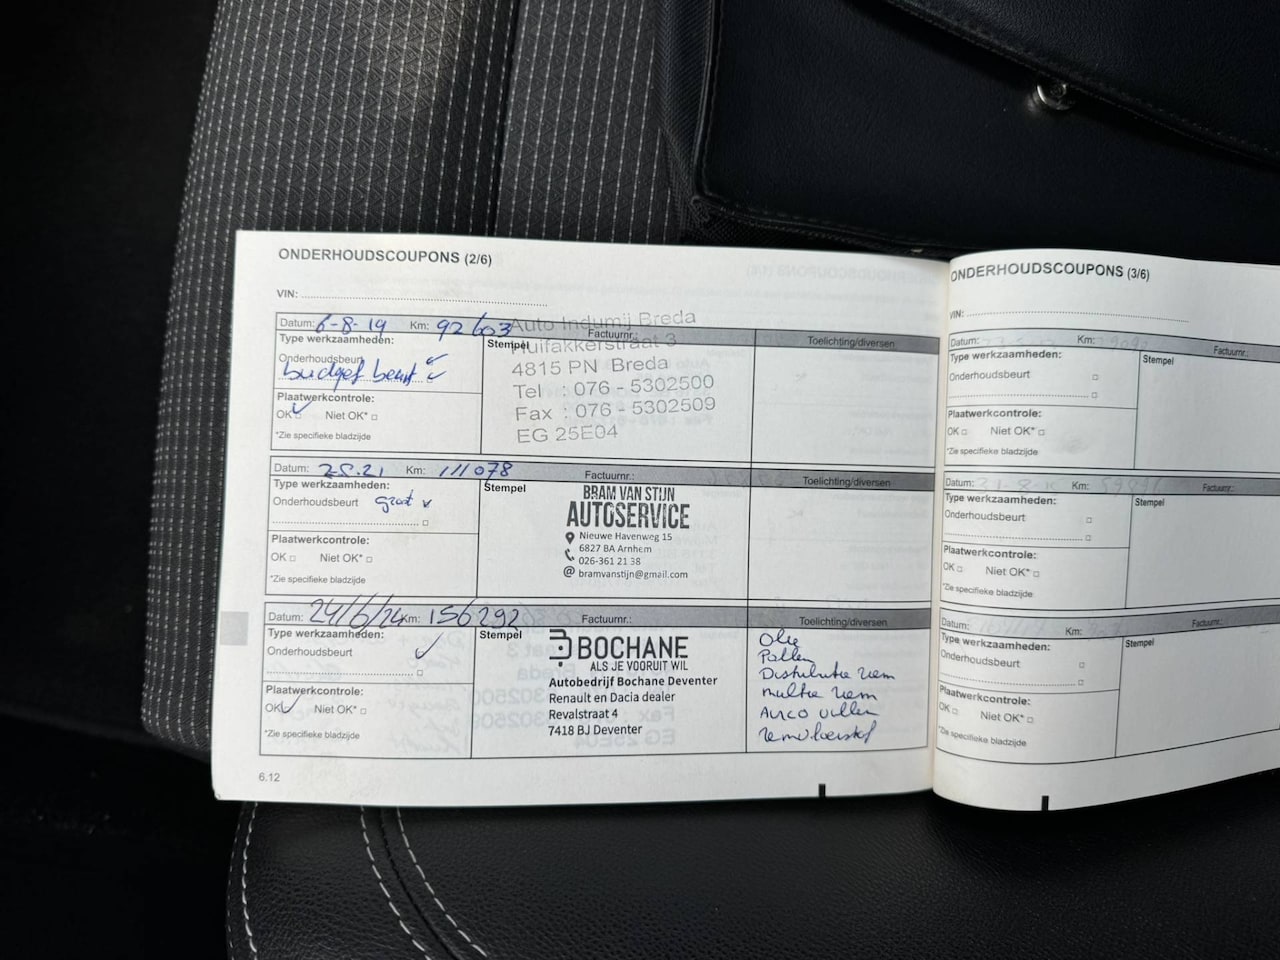 ONDERHOUDSCOUPONS (2/6)
VIN:
Datum: 6-8-19 Km: 92603 Factuurnr.: Toelichting/diversen
Type werkzaamheden:
Onderhoudsbeurt
budget beurt
Plaatwerkcontrole:
OK Niet OK*
*Zie specifieke bladzijde
Stempel
Auto Indumij Breda
Huifakkerstraat 3
4815 PN Breda
Tel : 076 - 5302500
Fax : 076 - 5302509
EG 25E04
Datum: Km: 111078 Factuurnr.: Toelichting/diversen
Type werkzaamheden:
Onderhoudsbeurt groot
Plaatwerkcontrole:
OK Niet OK*
*Zie specifieke bladzijde
Stempel
BRAM VAN STIJN
AUTOSERVICE
Nieuwe Havenweg 15
6827 BA Arnhem
026-361 21 38
@ bramvanstijn@gmail.com
Datum: 24/6/24 Km: 156292 Factuurnr.: Toelichting/diversen
Type werkzaamheden:
Onderhoudsbeurt
Plaatwerkcontrole:
OK Niet OK*
*Zie specifieke bladzijde
Stempel
BOCHANE
ALS JE VOORUIT WIL
Autobedrijf Bochane Deventer
Renault en Dacia dealer
Revalstraat 4
7418 BJ Deventer
Olie
Pollen
Distributie riem
multie riem
Airco vullen
Remvloeistof
6.12
ONDERHOUDSCOUPONS (3/6)
VIN:
Datum: Km: Factuurnr.:
Type werkzaamheden:
Onderhoudsbeurt
Plaatwerkcontrole:
OK Niet OK*
*Zie specifieke bladzijde
Stempel
Datum: Km: Factuurnr.:
Type werkzaamheden:
Onderhoudsbeurt
Plaatwerkcontrole:
OK Niet OK*
*Zie specifieke bladzijde
Stempel
Datum: Km: Factuurnr.:
Type werkzaamheden:
Onderhoudsbeurt
Plaatwerkcontrole:
OK Niet OK*
*Zie specifieke bladzijde
Stempel